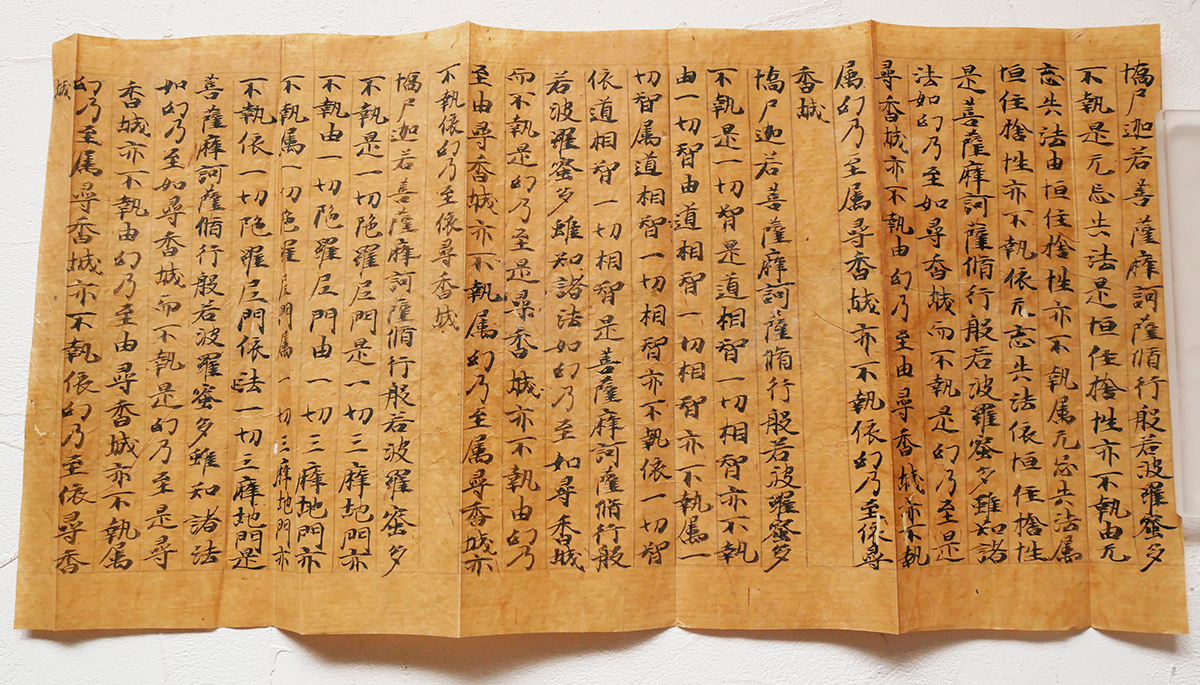 憍尸迦若菩薩摩訶薩脩行般若波羅蜜多
不執是无忘失法是恒住捨性亦不執由无
忘失法由恒住捨性亦不執属无忘失法属
恒住捨性亦不執依无忘失法依恒住捨性
是菩薩摩訶薩脩行般若波羅蜜多雖知諸
法如幻乃至如尋香城而不執是幻乃至是
尋香城亦不執由幻乃至由尋香城亦不執
属幻乃至属尋香城亦不執依幻乃至依尋
香城
憍尸迦若菩薩摩訶薩脩行般若波羅蜜多
不執是一切智是道相智一切相智亦不執
由一切智由道相智一切相智亦不執属一
切智属道相智一切相智亦不執依一切智
依道相智一切相智是菩薩摩訶薩脩行般
若波羅蜜多雖知諸法如幻乃至如尋香城
而不執是幻乃至是尋香城亦不執由幻乃
至由尋香城亦不執属幻乃至属尋香城亦
不執依幻乃至依尋香城
憍尸迦若菩薩摩訶薩脩行般若波羅蜜多
不執是一切陁羅尼門是一切三摩地門亦
不執由一切陁羅尼門由一切三摩地門亦
不執属一切陁羅尼門属一切三摩地門亦
不執依一切陁羅尼門依法一切三摩地門是
菩薩摩訶薩脩行般若波羅蜜多雖知諸法
如幻乃至如尋香城而不執是幻乃至是尋
香城亦不執由幻乃至由尋香城亦不執属
幻乃至属尋香城亦不執依幻乃至依尋香
城